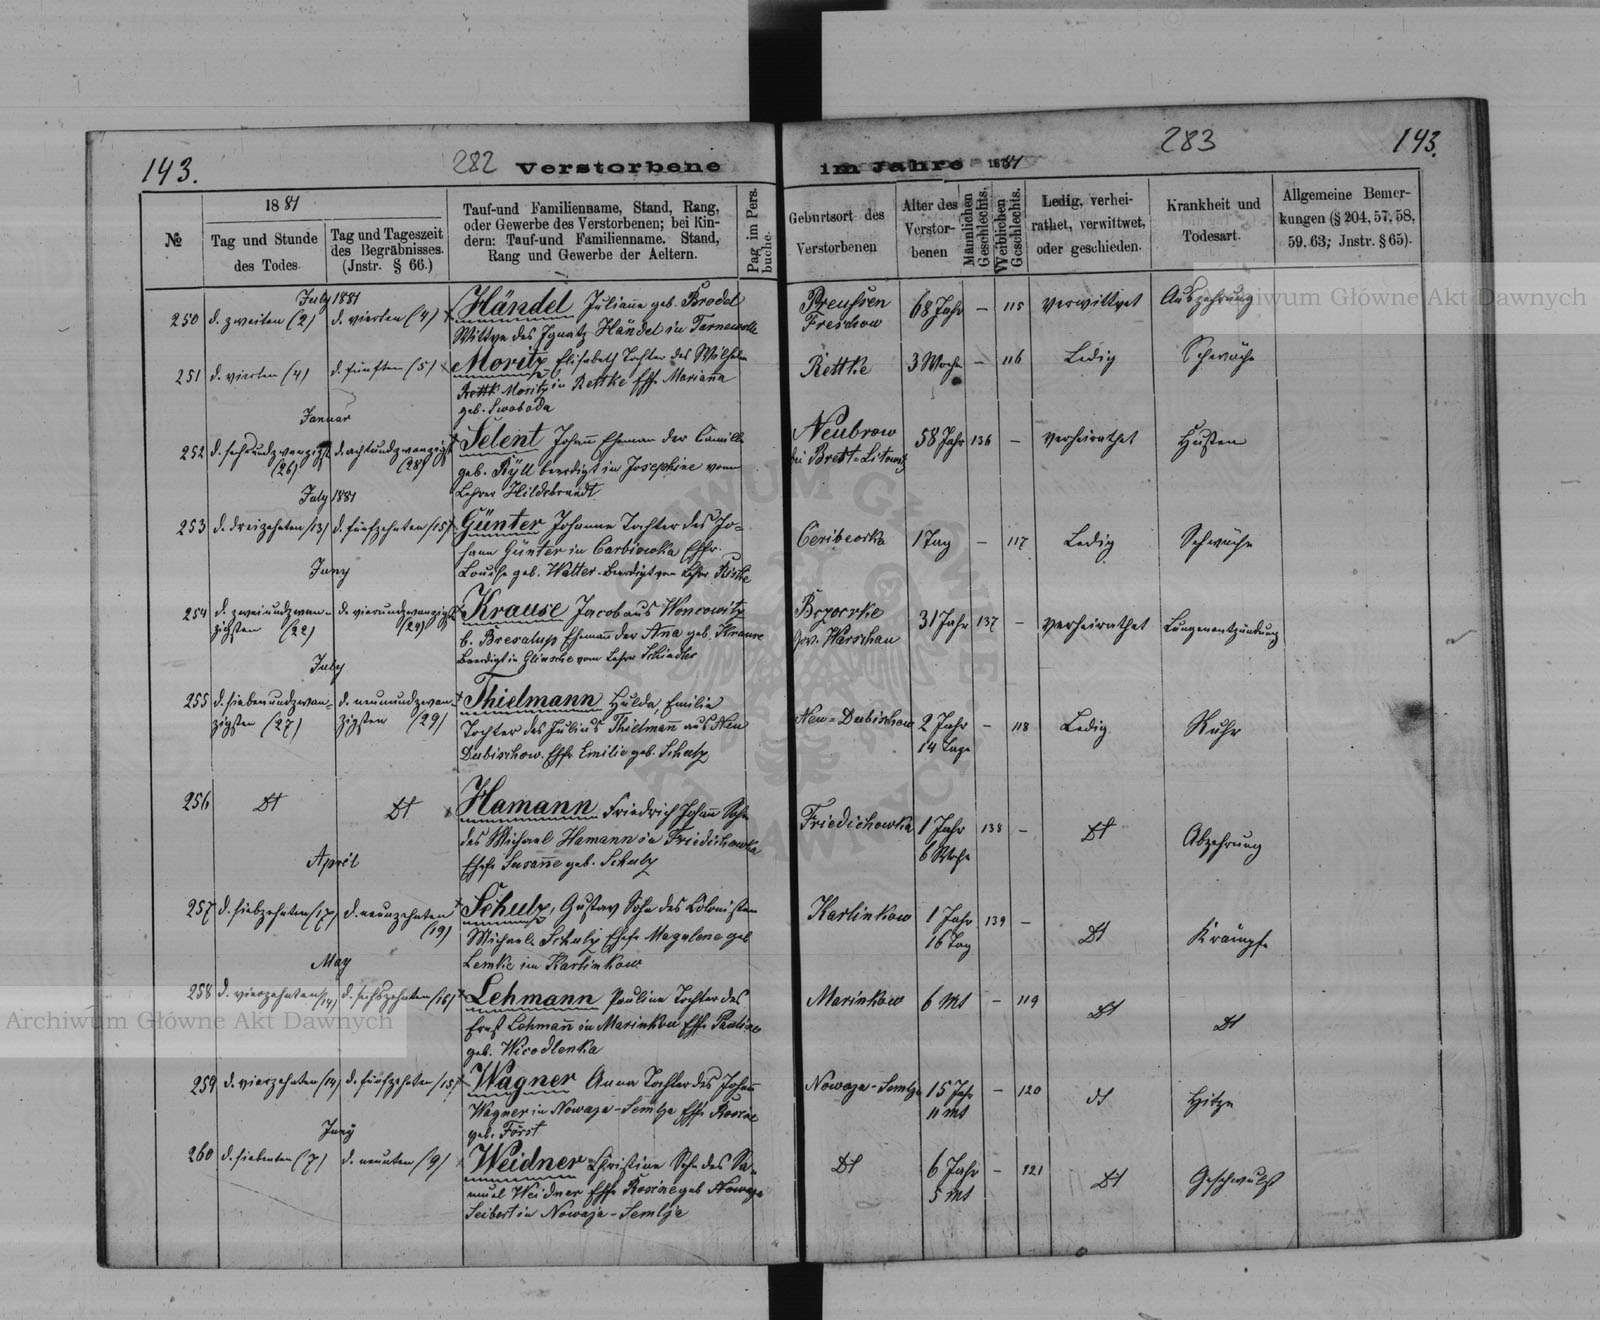 143.
282
Verstorbene
im Jahre 1881
283
143.
№
1881
Tag und Stunde
des Todes.
Tag und Tageszeit
des Begräbnisses.
(Jnstr. § 66.)
Tauf-und Familienname, Stand, Rang,
oder Gewerbe des Verstorbenen; bei Kin-
dern: Tauf-und Familienname. Stand,
Rang und Gewerbe der Aeltern.
Pag im Pers.
buche.
Geburtsort des
Verstorbenen
Alter des
Verstor-
benen
Männlichen
Geschlechts.
Weiblichen
Geschlechts.
Ledig, verhei-
rathet, verwittwet,
oder geschieden.
Krankheit und
Todesart.
Allgemeine Bemer-
kungen (§ 204, 57, 58,
59, 63; Jnstr. § 65).
July 1881
250 d. zweiten (2) d. vierten (4) Händel Juliane geb. Brodel
Wittwe des Ignatz Händel in Tarnawolle
Preussen
Freschow
68 Jahr – 115 verwittwet Auszehrung
251 d. vierten (4) d. fünften (5) Moritz Elisabeth Tochter des Wilhelm
Moritz in Rettke Ehfr Marianna
geb. Swoboda
Rettke 3 Woche – 116 Ledig Schwäche
Januar
252 d. sechsundzwanzigst (26) d. achtundzwanzigst (28) Selent Johann Ehemann der Camilla
geb. Ryll beerdigt in Josephine vom
Lehrer Hildebrandt
Neubrow
bei Brest-Litowsk
58 Jahr 136 – verheirathet Husten
July 1881
253 d. dreizehnten (13) d. fünfzehnten (15) Günter Johanne Tochter des Jo-
hann Günter in Carbiowka Ehfr.
Louise geb. Walter. Beerdigt von Lehrer Riske
1 Tag – 117 Ledig Schwäche
Juny
254 d. zweiundzwan-
zigsten (22)
d. vierundzwanzigst
(24)
Krause Jacob aus Woncowitz
Ehemann der Ana geb. Krause
Beerdigt in Glinsche vom Lehrer Schindler
Gov. Warschau
31 Jahr 137 – verheirathet Lungenentzündung
July
255 d. siebenundzwan-
zigsten (27)
d. neunundzwan-
zigsten (29)
Thielmann Hulda, Emilie
Tochter des Julius Thielmann aus Neu
Dubischow. Ehfr Emilie geb. Schulz
Neu-Dubischow 2 Jahr
14 Tage
– 118 Ledig Ruhr
256 Dt Dt Hamann Friedrich Johann Sohn
des Michael Hamann in Friedichowka
Ehefr Susanne geb. Schulz
Friedichowka 1 Jahr
6 Woche
138 – Dt Abzehrung
April
257 d. siebzehnten (17) d. neunzehnten
(19)
Schulz, Gustav Sohn des Colonisten
Michael Schulz Ehefr Magdlene geb
Lemke im Karlinkow
Karlinkow 1 Jahr
16 Tag
139 – Dt Krämpfe
May
258 d. vierzehnten (14) d. sechszehnten (16) Lehmann Pauline Tochter des
Ernst Lehmann in Marinkow Ehfr Pauline
geb. Wicodlenka
Marinkow 6 Mt – 119 Dt Dt
259 d. vierzehnten (14) d. fünfzehnten (15) Wagner Anna Tochter des Johann
Wagner in Nowaja-Semlja Ehfr Rosine
geb. Först
Nowaja-Semlja 15 Jahr
11 Mt
– 120 dt Hitze
Juny
260 d. siebenten (7) d. neunten (9) Weidner Christine Sohn des Sa-
muel Weidner Ehfr Rosine geb
Seibert in Nowaja-Semlja
Dt 6 Jahr
5 Mt
– 121 Dt Geschwulst
Archiwum Główne Akt Dawnych
Archiwum Główne Akt Dawnych